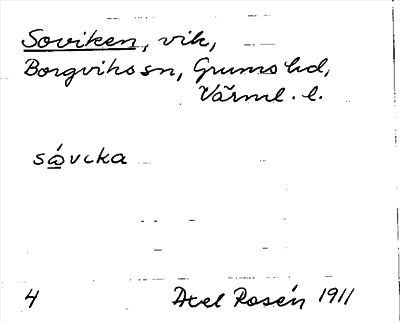 Soviken, vik,
Borgviks sn, Grums hd,
Värml. l.
sǻvıka
4 Axel Rosén 1911